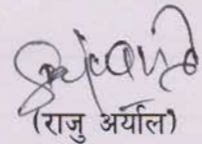 (राजु अर्याल)